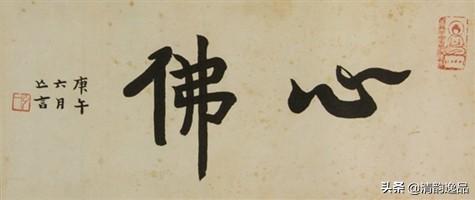 心佛
庚午
六月
亾言
头条 @清韵逸品